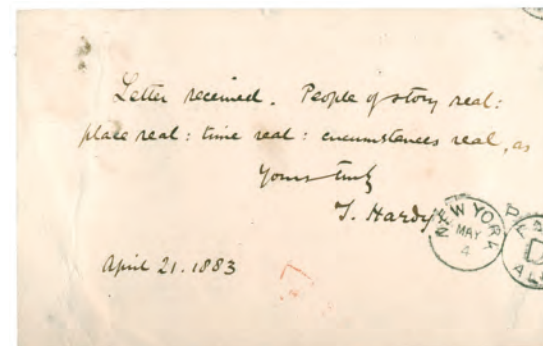 Letter received. People of story real:
place real: time real: circumstances real, as
Yours truly
T. Hardy
NEW YORK
MAY
4
P
D
AL
April 21. 1883